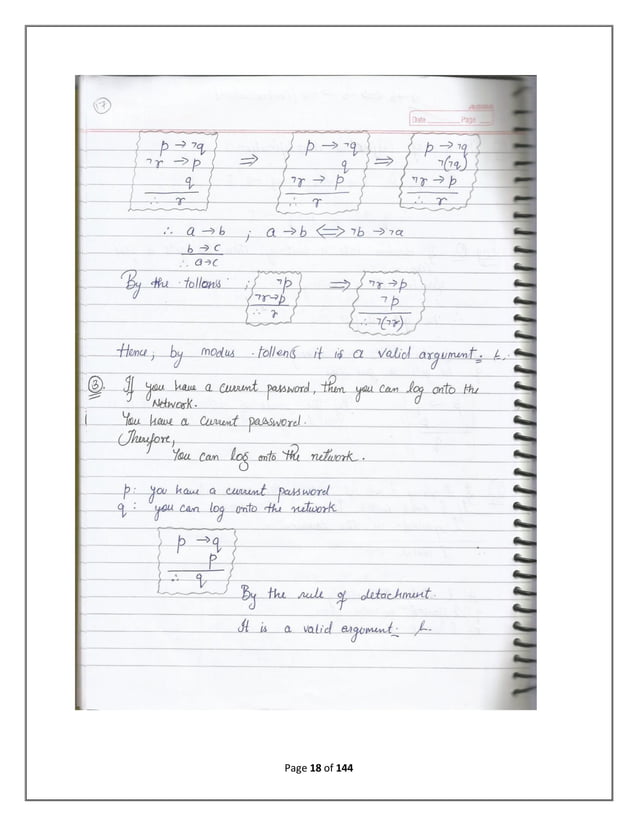 17
Date Page
p → ¬q p → ¬q p → ¬q
¬r → p ⇒ q ⇒ ¬(¬q)
q ¬r → p ¬r → p
∴ r ∴ r ∴ r
∴ a → b ; a → b ⇔ ¬b → ¬a
b → c
∴ a→c
By the tollens : ¬p ⇒ ¬r → p
¬r→p ¬p
∴ r ∴ ¬(¬r)
Hence, by modus tollens it is a valid argument.
③. If you have a current password, then you can log onto the
Network.
i You have a current password.
Therefore,
You can log onto the network.
p: you have a current password
q: you can log onto the network
p → q
p
∴ q
By the rule of detachment.
It is a valid argument.
Page 18 of 144